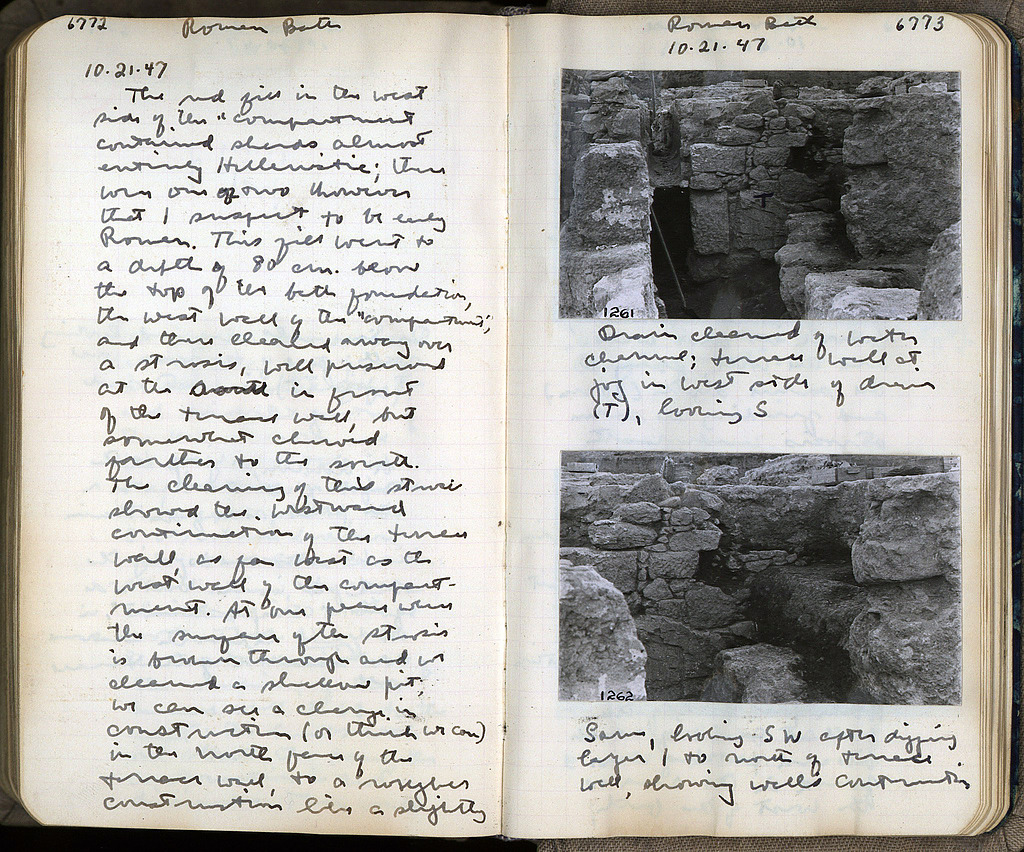 6772
Roman Bath
10.21.47
The red fill in the west
side of the "compartment
contained sherds almost
entirely Hellenistic; there
were one or two however
that I suspect to be early
Roman. This fill went to
a depth of 80 cm. below
the top of the bath foundation,
the west wall of the "compartment",
and then cleared away over
a strosis, well preserved
at the in front
of the terrace wall, but
somewhat chewed
farther to the south.
The cleaning of this strosis
showed the westward
continuation of the terrace
wall, as far west as the
west wall of the compart-
ment. At one place where
the surface of the strosis
is broken through and we
cleaned a shallow pit,
we can see a change in
construction (or think we can)
in the north face of the
terrace wall, to a rougher
construction like a slightly
Roman Bath
6773
10.21.47
T
1261
Drain cleaned of water
channel; terrace wall at
jog in west side of drain
(T), looking S
1262
Same, looking SW after digging
layer 1 to north of terrace
wall, showing wall's continuation